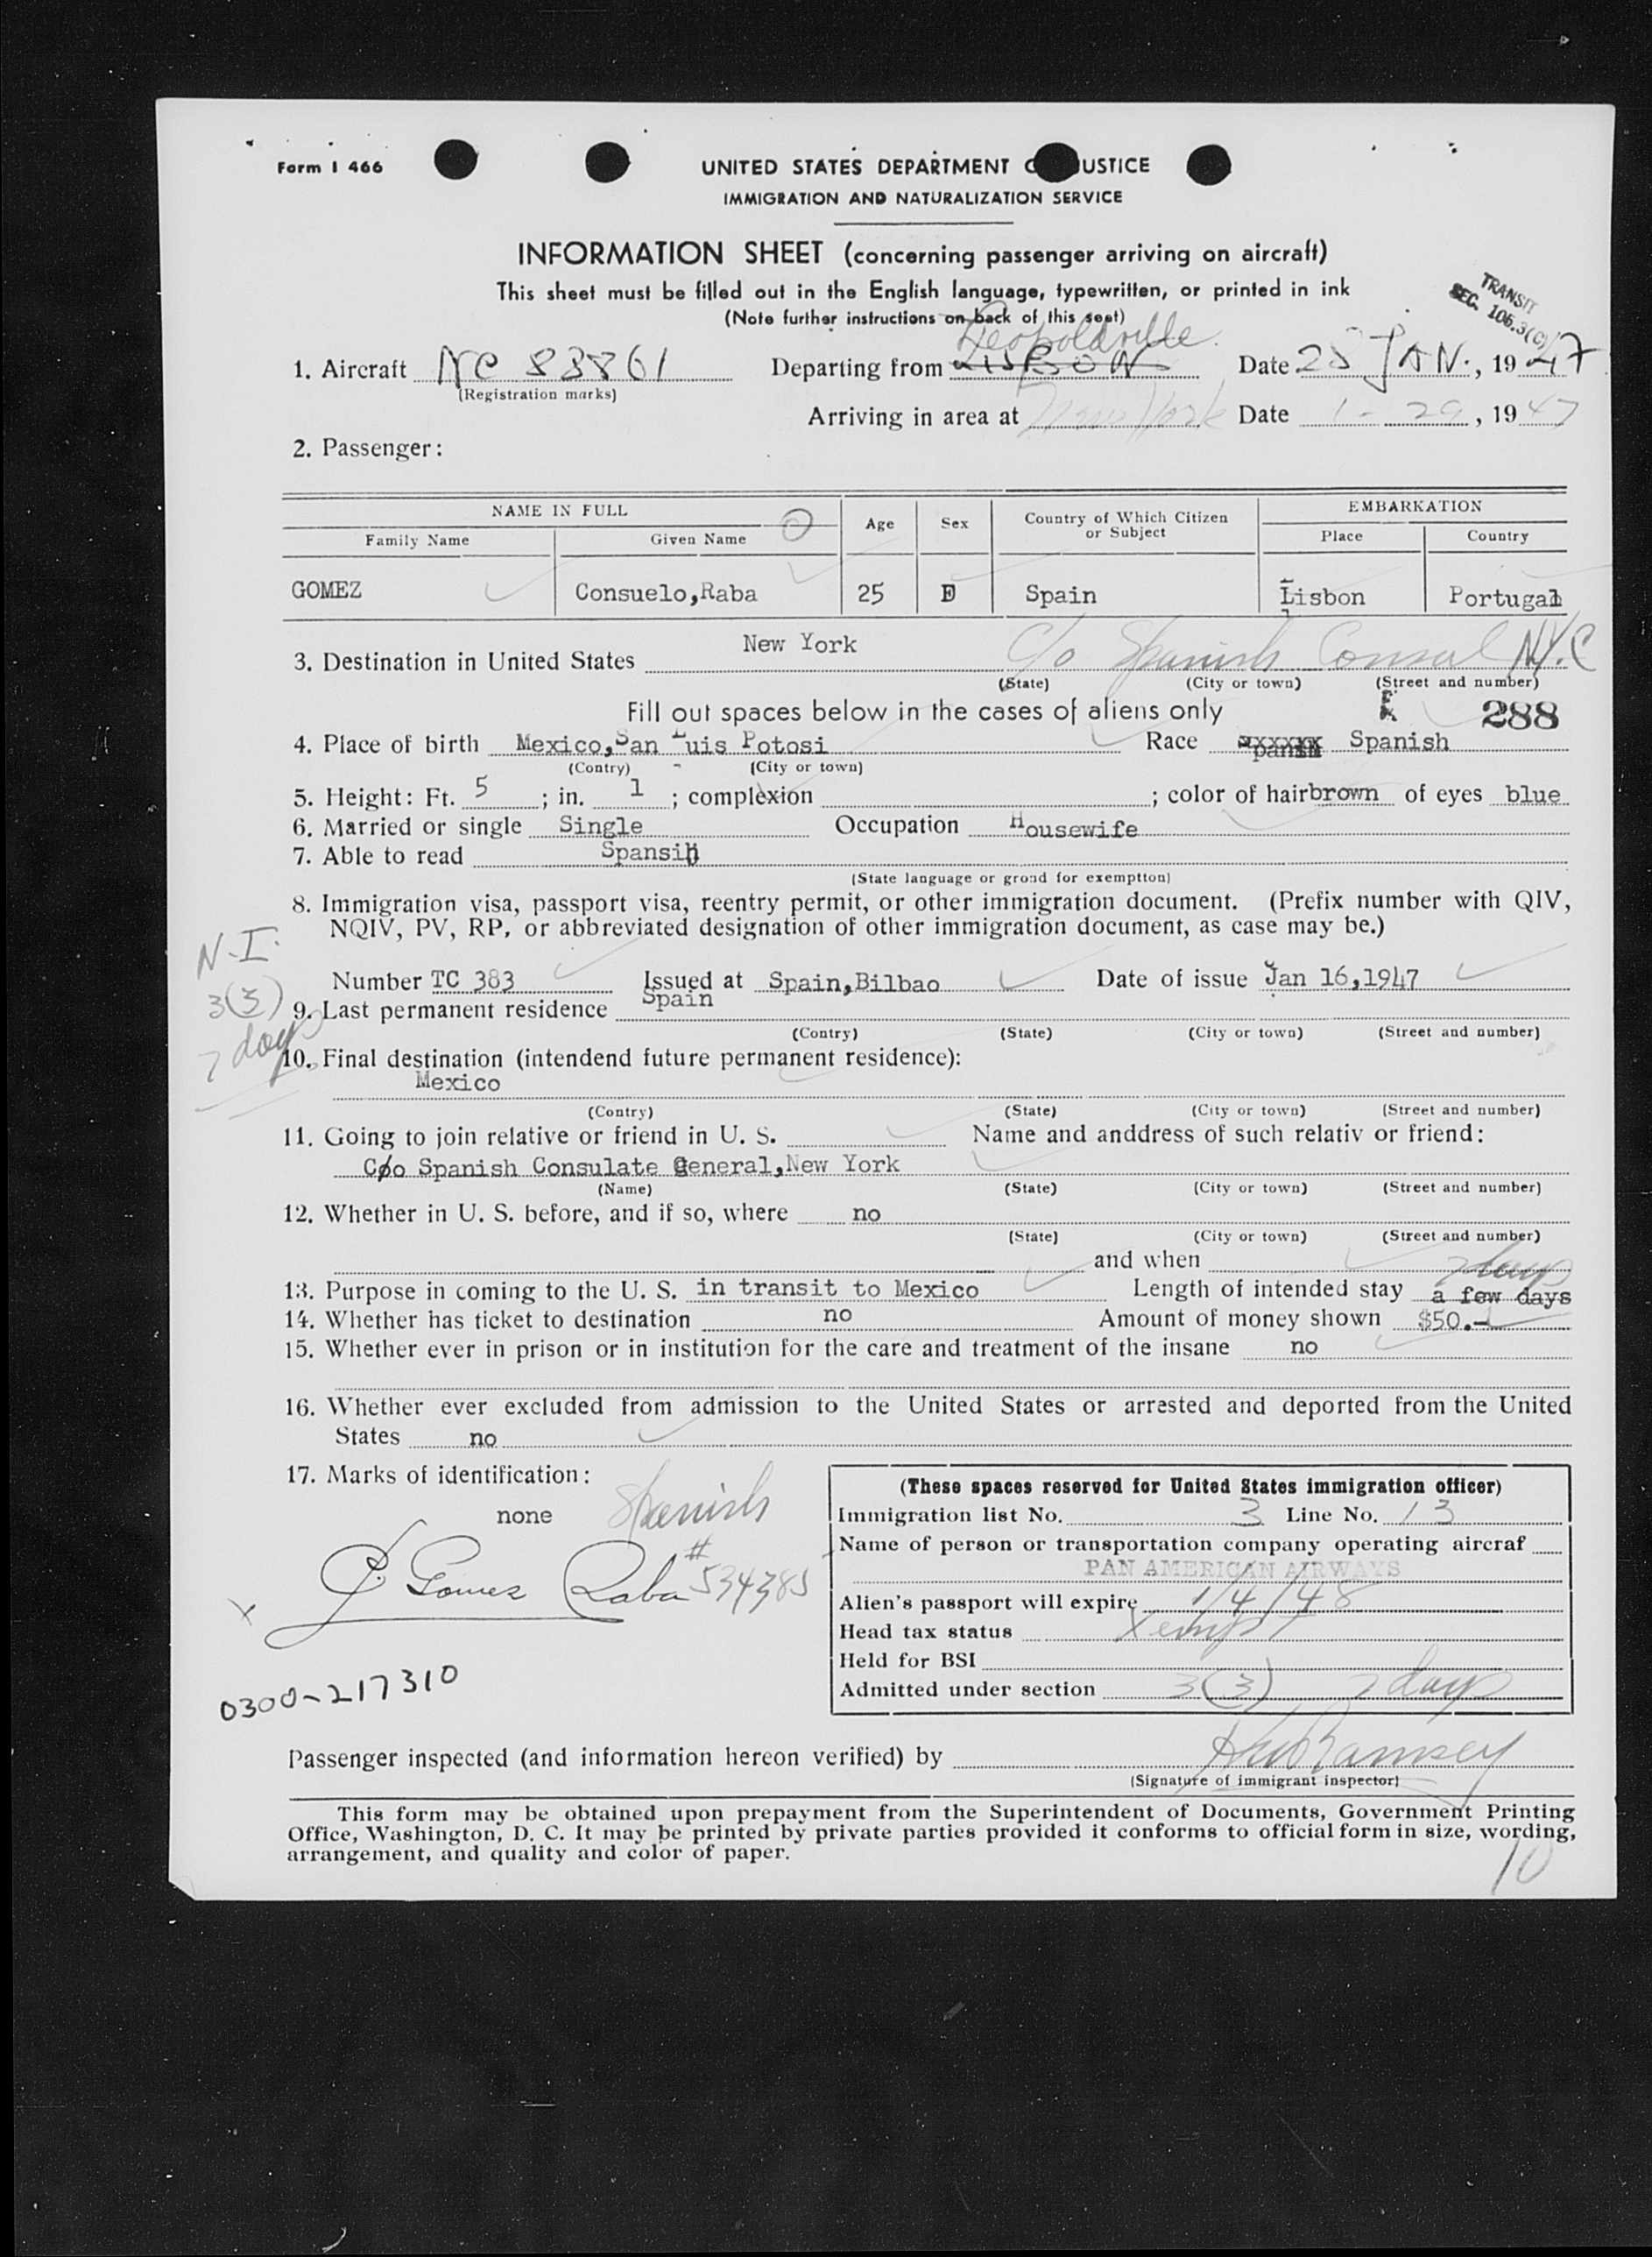 Form I 466
UNITED STATES DEPARTMENT O USTICE
IMMIGRATION AND NATURALIZATION SERVICE
INFORMATION SHEET (concerning passenger arriving on aircraft)
This sheet must be filled out in the English language, typewritten, or printed in ink
(Note further instructions on back of this seet)
TRANSIT
SEC. 105.3(C)
Leopoldville.
1. Aircraft NC 88861 Departing from LISBON Date 28 JAN., 1947
(Registration marks)
Arriving in area at New York Date 1-29, 1947
2. Passenger:
NAME IN FULL Age Sex Country of Which Citizen or Subject EMBARKATION
Family Name Given Name Place Country
GOMEZ Consuelo,Raba 25 F Spain Lisbon Portugal
3. Destination in United States New York C/o Spanish Consul N.Y.C
(State) (City or town) (Street and number)
Fill out spaces below in the cases of aliens only 288
4. Place of birth Mexico,San Luis Potosi Race Spanish
(Contry) (City or town)
5. Height: Ft. 5 ; in. 1 ; complexion ; color of hair brown of eyes blue
6. Married or single Single Occupation Housewife
7. Able to read Spansih
(State language or grond for exemptton)
8. Immigration visa, passport visa, reentry permit, or other immigration document. (Prefix number with QIV,
NQIV, PV, RP, or abbreviated designation of other immigration document, as case may be.)
N.I.
Number TC 383 Issued at Spain,Bilbao Date of issue Jan 16,1947
3(3)
9. Last permanent residence Spain
(Contry) (State) (City or town) (Street and number)
7 days
10. Final destination (intendend future permanent residence):
Mexico
(Contry) (State) (City or town) (Street and number)
11. Going to join relative or friend in U. S. Name and anddress of such relativ or friend:
C/o Spanish Consulate General,New York
(Name) (State) (City or town) (Street and number)
12. Whether in U. S. before, and if so, where no
(State) (City or town) (Street and number)
and when
7 days
13. Purpose in coming to the U. S. in transit to Mexico Length of intended stay a few days
14. Whether has ticket to destination no Amount of money shown $50.-
15. Whether ever in prison or in institution for the care and treatment of the insane no
16. Whether ever excluded from admission to the United States or arrested and deported from the United
States no
17. Marks of identification:
none Spanish
C. Gomez Raba # 534385
0300-217310
(These spaces reserved for United States immigration officer)
Immigration list No. 3 Line No. 13
Name of person or transportation company operating aircraf
PAN AMERICAN AIRWAYS
Alien's passport will expire 1/4/48
Head tax status Xempt
Held for BSI
Admitted under section 3(3) 7 days
Passenger inspected (and information hereon verified) by Ramsey
(Signature of immigrant inspector)
This form may be obtained upon prepayment from the Superintendent of Documents, Government Printing
Office, Washington, D. C. It may be printed by private parties provided it conforms to official form in size, wording,
arrangement, and quality and color of paper.
10